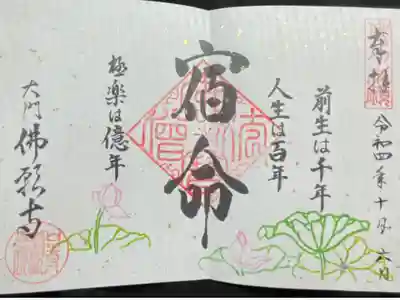 奉拝
令和四年十月六日
前生は千年
人生は百年
宿命
極楽は億年
大門 佛願寺